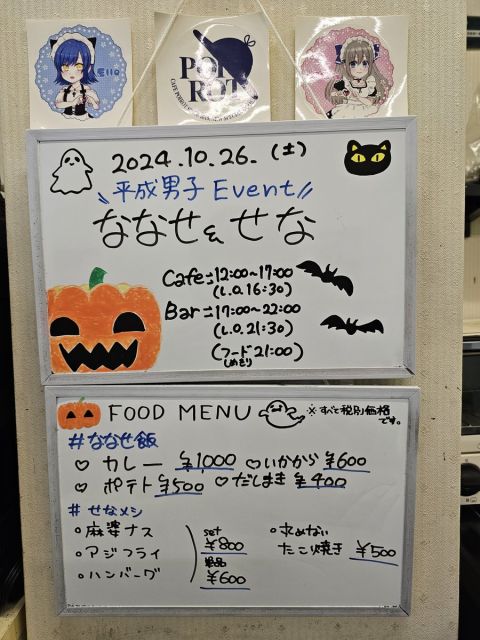 Ello
POIROT
2024.10.26. (土)
平成男子 Event
ななせ&せな
Cafe:12:00~17:00
(L.O.16:30)
Bar:17:00~22:00
(L.O.21:30)
(フード21:00)
しめきり
FOOD MENU
※すべて税別価格
です。
#ななせ飯
♡ カレー ¥1000 ♡いかから ¥600
♡ ポテト ¥500 ♡だしまき ¥400
#せなメシ
・麻婆ナス
・アジフライ
・ハンバーグ
set
¥800
単品
¥600
・求めない
たこ焼き ¥500